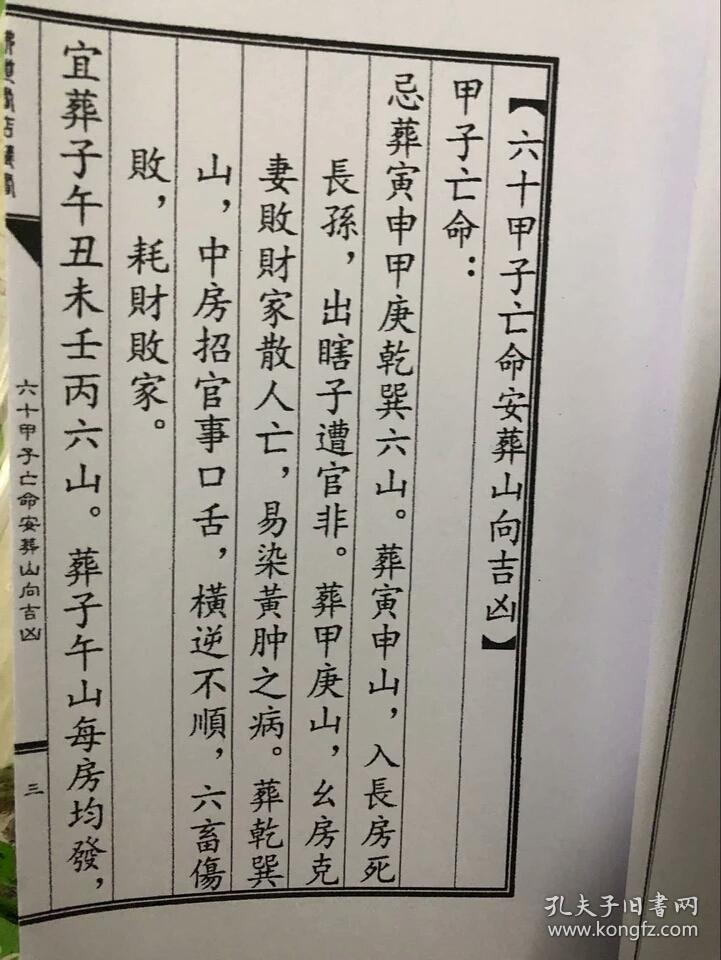 【六十甲子亡命安葬山向吉凶】
甲子亡命：
忌葬寅申甲庚乾巽六山。葬寅申山，入長房死
長孫，出瞎子遭官非。葬甲庚山，幺房克
妻敗財家散人亡，易染黃肿之病。葬乾巽
山，中房招官事口舌，橫逆不順，六畜傷
敗，耗財敗家。
宜葬子午丑未壬丙六山。葬子午山每房均發，
六十甲子亡命安葬山向吉凶
三
孔夫子旧书网
www.kongfz.com